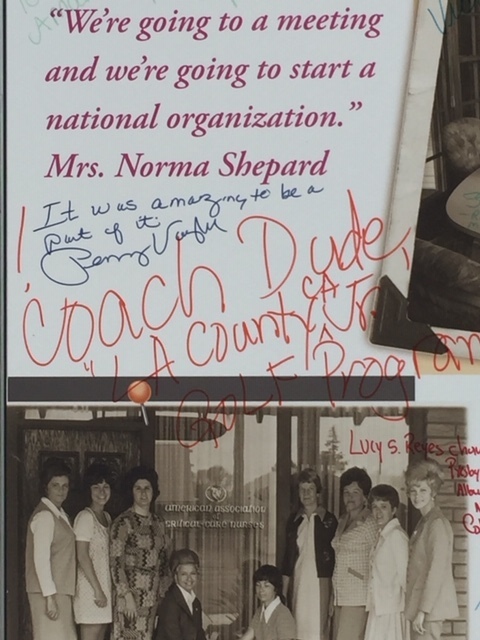 “We’re going to a meeting
and we’re going to start a
national organization.”
Mrs. Norma Shepard
It was amazing to be a
part of it.
Penny
Coach Dude,
"LA County CA Jr.
Golf Program
Lucy S. Reyes
AMERICAN ASSOCIATION
of
CRITICAL-CARE NURSES